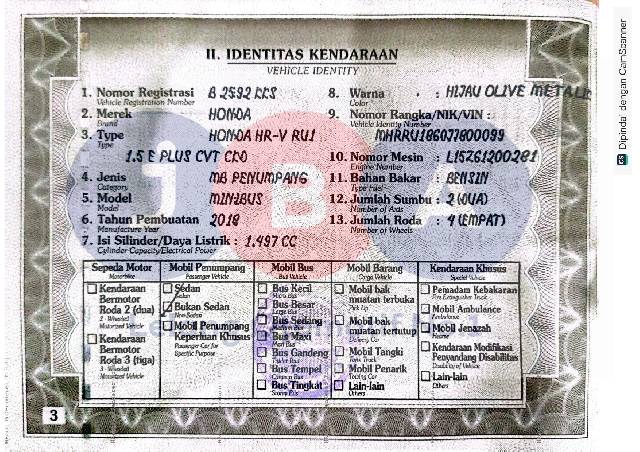 II. IDENTITAS KENDARAAN
VEHICLE IDENTITY
1. Nomor Registrasi B 2592 KKS
Vehicle Registration Number
2. Merek HONDA
Brand
3. Type HONDA HR-V RU1
Type
1.5 E PLUS CVT CKD
4. Jenis MB PENUMPANG
Category
5. Model MINIBUS
Model
6. Tahun Pembuatan 2018
Manufacture Year
7. Isi Silinder/Daya Listrik : 1.497 CC
Cylinder Capacity/Electrical Power
8. Warna : HIJAU OLIVE METALIK
Color
9. Nomor Rangka/NIK/VIN :
Vehicle Identity Number
10. Nomor Mesin : L15Z61200281
Engine Number
11. Bahan Bakar : BENSIN
Type Fuel
12. Jumlah Sumbu : 2 (DUA)
Number of Axls
13. Jumlah Roda : 4 (EMPAT)
Number of Wheels
Sepeda Motor
Motorbike
Kendaraan
Bermotor
Roda 2 (dua)
2 - Wheeled
Motorized Vehicle
Kendaraan
Bermotor
Roda 3 (tiga)
3 - Wheeled
Motorized Vehicle
Mobil Penumpang
Passenger Vehicle
Sedan
Sedan
Bukan Sedan
Non-Sedan
Mobil Penumpang
Keperluan Khusus
Passenger Car for
Specific Purpose
Mobil Bus
Bus Vehicle
Bus Kecil
Micro Bus
Bus Besar
Large Bus
Bus Sedang
Medium Bus
Bus Maxi
Maxi Bus
Bus Gandeng
Bus Tempel
Bus Tingkat
Mobil Barang
Cargo Vehicle
Mobil bak
muatan terbuka
Pick Up
Mobil bak
muatan tertutup
Delivery Car
Mobil Tangki
Tank Truck
Mobil Penarik
Towing Car
Lain-lain
Others
Kendaraan Khusus
Special Vehicle
Pemadam Kebakaran
Fire Extinguisher Truck
Mobil Ambulance
Ambulance
Mobil Jenazah
Hearse
Kendaraan Modifikasi
Penyandang Disabilitas
Disability of Vehicle
Lain-Lain
Others
3
i B
CS Dipindai dengan CamScanner